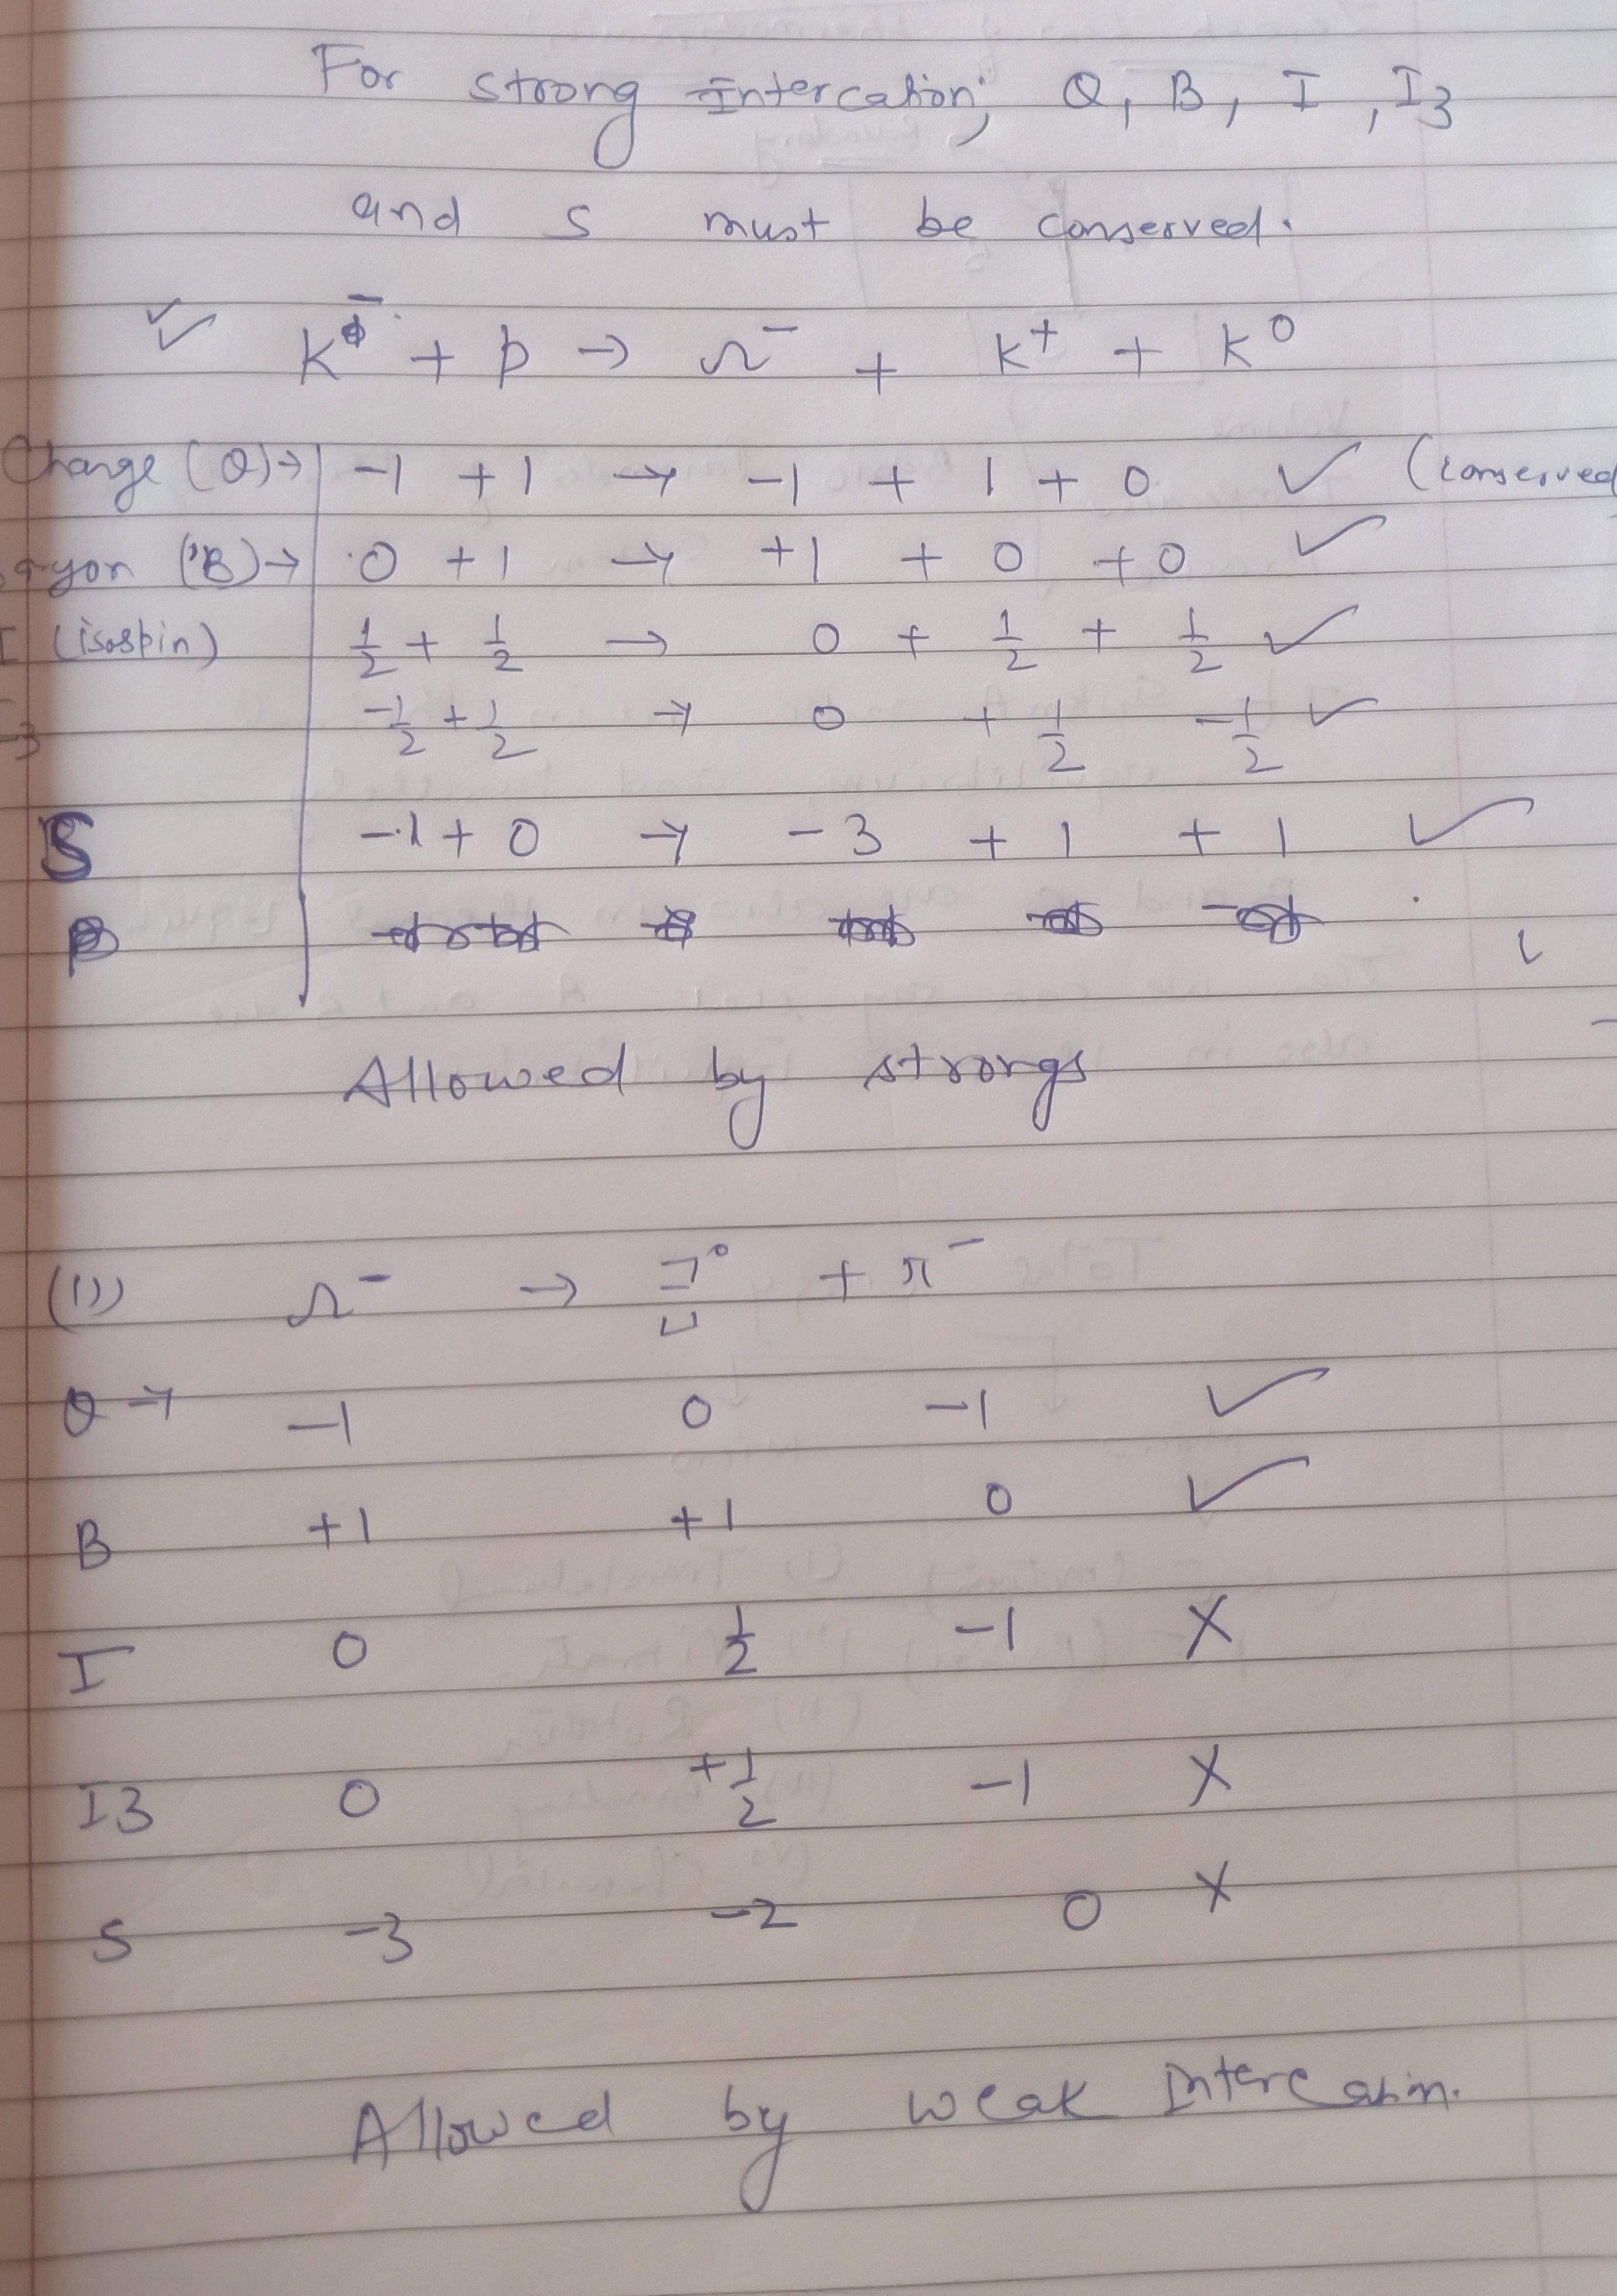 For strong Intercation; Q, B, I, I3
and S must be conserved.
K⁻ + p → Ω⁻ + K⁺ + K⁰
Charge (Q)→ -1 + 1 → -1 + 1 + 0 ✓ (conserved
yon (B)→ 0 + 1 → +1 + 0 + 0 ✓
I (isospin) 1/2 + 1/2 → 0 + 1/2 + 1/2 ✓
-1/2 + 1/2 → 0 + 1/2 -1/2 ✓
S -1 + 0 → -3 + 1 + 1 ✓
Allowed by strongs
(11) Ω⁻ → Ξ⁰ + π⁻
Q → -1 0 -1 ✓
B +1 +1 0 ✓
I 0 1/2 -1 X
I3 0 +1/2 -1 X
S -3 -2 0 X
Allowed by weak Intercation.